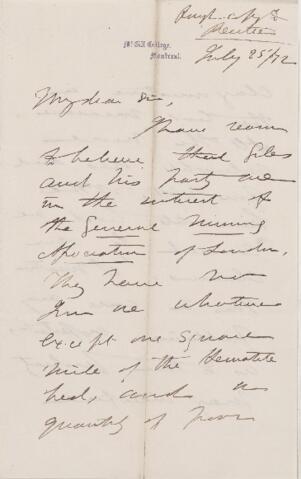 McGill College,
Montreal.
July 25/72
My dear Sir,
I have reason
to believe that Giles
and his party are
in the interest of
the General Mining
Association of London.
They have no
Iron ore whatever
except one square
mile of the Hematite
bed, and a
quantity of poor